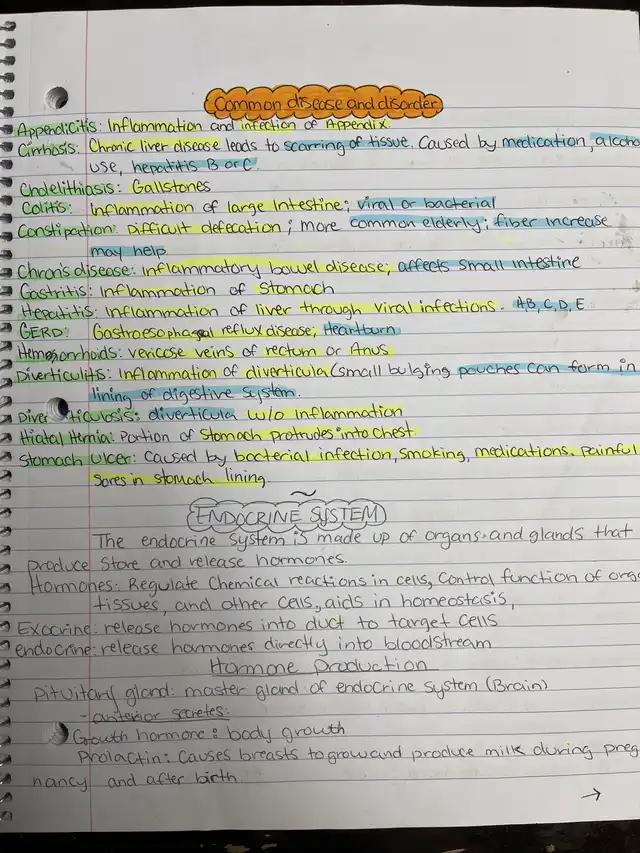 Common disease and disorder
Appendicitis: Inflammation and infection of Appendix
Cirrhosis: Chronic liver disease leads to scarring of tissue. Caused by medication, alcoho
use, hepatitis B or C.
Cholelithiasis: Gallstones
Colitis: Inflammation of large Intestine; viral or bacterial
Constipation: Difficult defecation; more common elderly; fiber increase
may help
Chron's disease: Inflammatory bowel disease; affects small intestine
Gastritis: Inflammation of Stomach
Hepatitis: Inflammation of liver through viral infections. A,B,C,D,E
GERD: Gastroesophageal reflux disease; Heartburn
Hemorrhoids: vericose veins of rectum or Anus
Diverticulitis: Inflammation of diverticula (small bulging pouches can form in
lining of digestive system.
Diverticulosis: diverticula w/o Inflammation
Hiatal Hernia: Portion of Stomach protrudes into chest
Stomach Ulcer: Caused by bacterial infection, smoking, medications. Painful
Sores in stomach lining.
ENDOCRINE SYSTEM
The endocrine system is made up of organs and glands that
produce store and release hormones.
Hormones: Regulate Chemical reactions in cells, Control function of orga
tissues, and other cells, aids in homeostasis,
Exocrine: release hormones into duct to target cells
endocrine: release hormones directly into bloodstream
Hormone Production
Pituitary gland: master gland of endocrine system (Brain)
- anterior secretes:
Growth hormone: body growth
Prolactin: Causes breasts to grow and produce milk during preg
nancy and after birth.
→